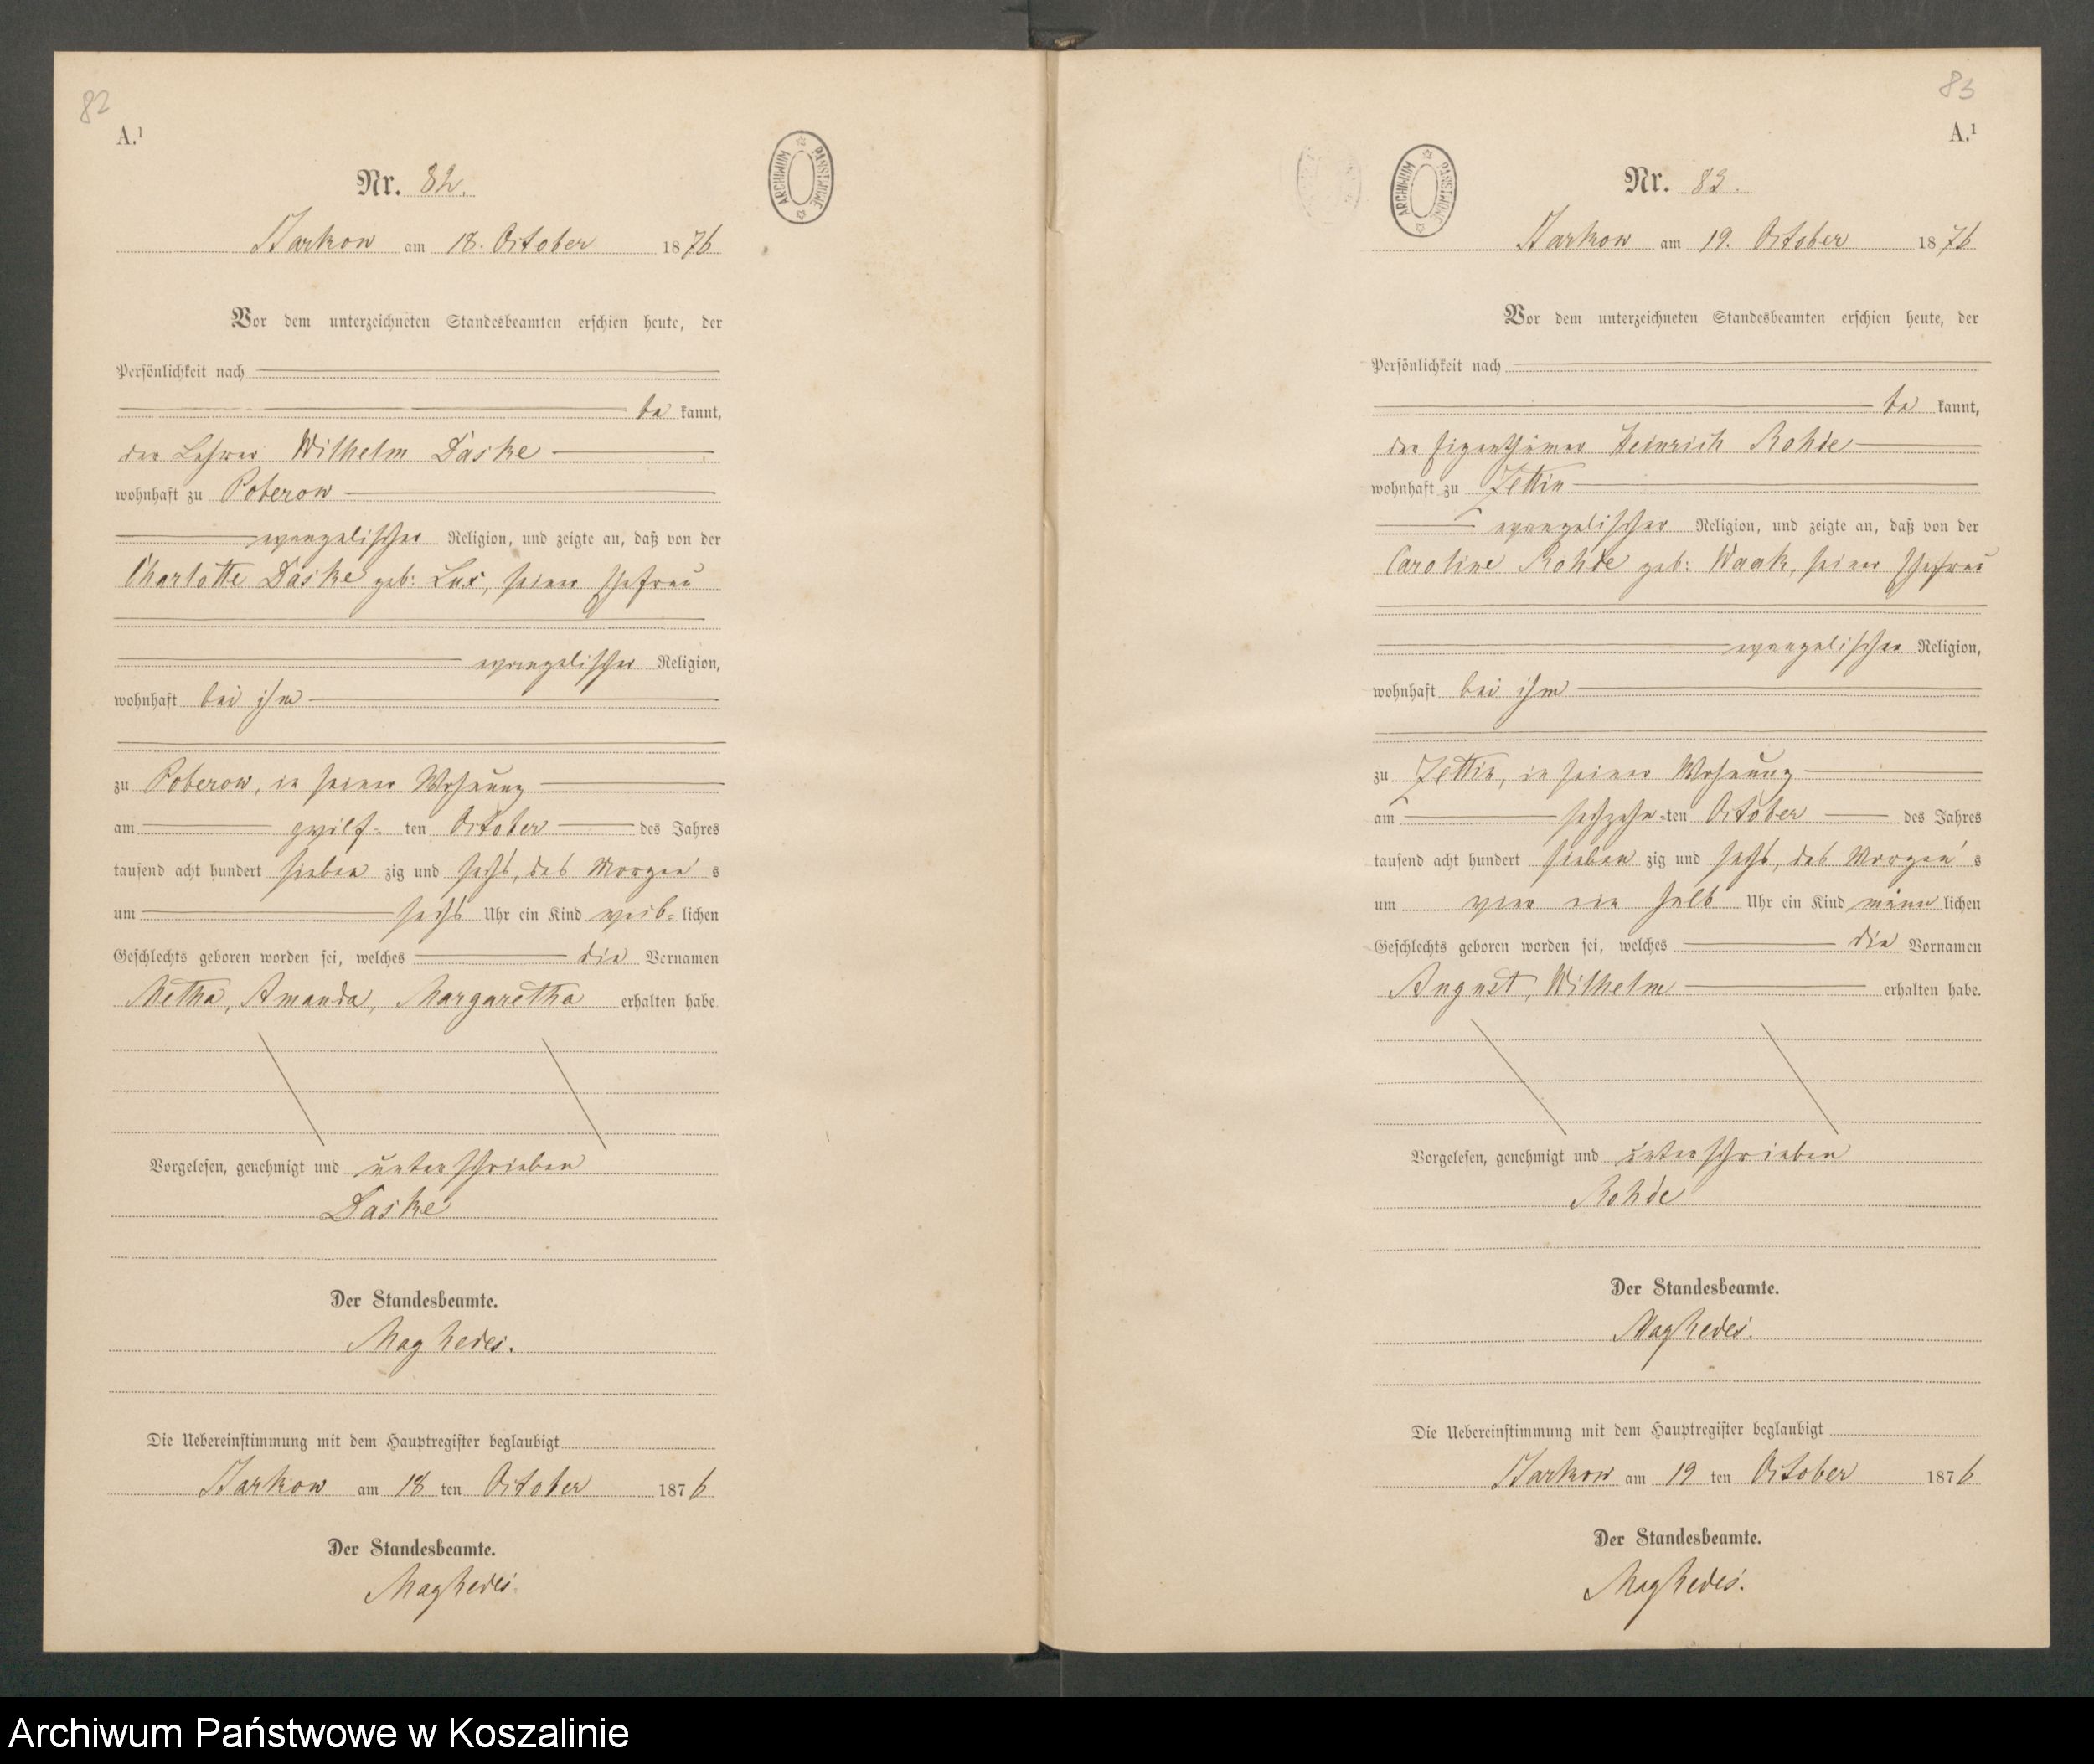 82
A.¹
ARCHIWUM PAŃSTWOWE
Nr. 82.
Starkow am 18. October 1876
Vor dem unterzeichneten Standesbeamten erschien heute, der
Persönlichkeit nach
be kannt,
der Lehrer Wilhelm Daske
wohnhaft zu Poberow
evangelischer Religion, und zeigte an, daß von der
Charlotte Daske geb: Lux, seiner Ehefrau
evangelischer Religion,
wohnhaft bei ihm
zu Poberow, in seiner Wohnung
am zwölf- ten October des Jahres
tausend acht hundert sieben zig und sechs, des Morgen s
um sechs Uhr ein Kind weib- lichen
Geschlechts geboren worden sei, welches die Vornamen
Metha, Amanda, Margaretha erhalten habe.
Vorgelesen, genehmigt und unterschrieben
Daske
Der Standesbeamte.
Die Uebereinstimmung mit dem Hauptregister beglaubigt
Starkow am 18 ten October 1876
Der Standesbeamte.
83
A.¹
ARCHIWUM PAŃSTWOWE
Nr. 83.
Starkow am 19. October 1876
Vor dem unterzeichneten Standesbeamten erschien heute, der
Persönlichkeit nach
be kannt,
der Eigenthümer Heinrich Rohde
wohnhaft zu Zettin
evangelischer Religion, und zeigte an, daß von der
Caroline Rohde geb: Waak, seiner Ehefrau
evangelischer Religion,
wohnhaft bei ihm
zu Zettin, in seiner Wohnung
am sechzehn-ten October des Jahres
tausend acht hundert sieben zig und sechs, des Morgen s
um vier ein halb Uhr ein Kind männ lichen
Geschlechts geboren worden sei, welches die Vornamen
August, Wilhelm erhalten habe.
Vorgelesen, genehmigt und unterschrieben
Rohde
Der Standesbeamte.
Die Uebereinstimmung mit dem Hauptregister beglaubigt
Starkow am 19 ten October 1876
Der Standesbeamte.
Archiwum Państwowe w Koszalinie